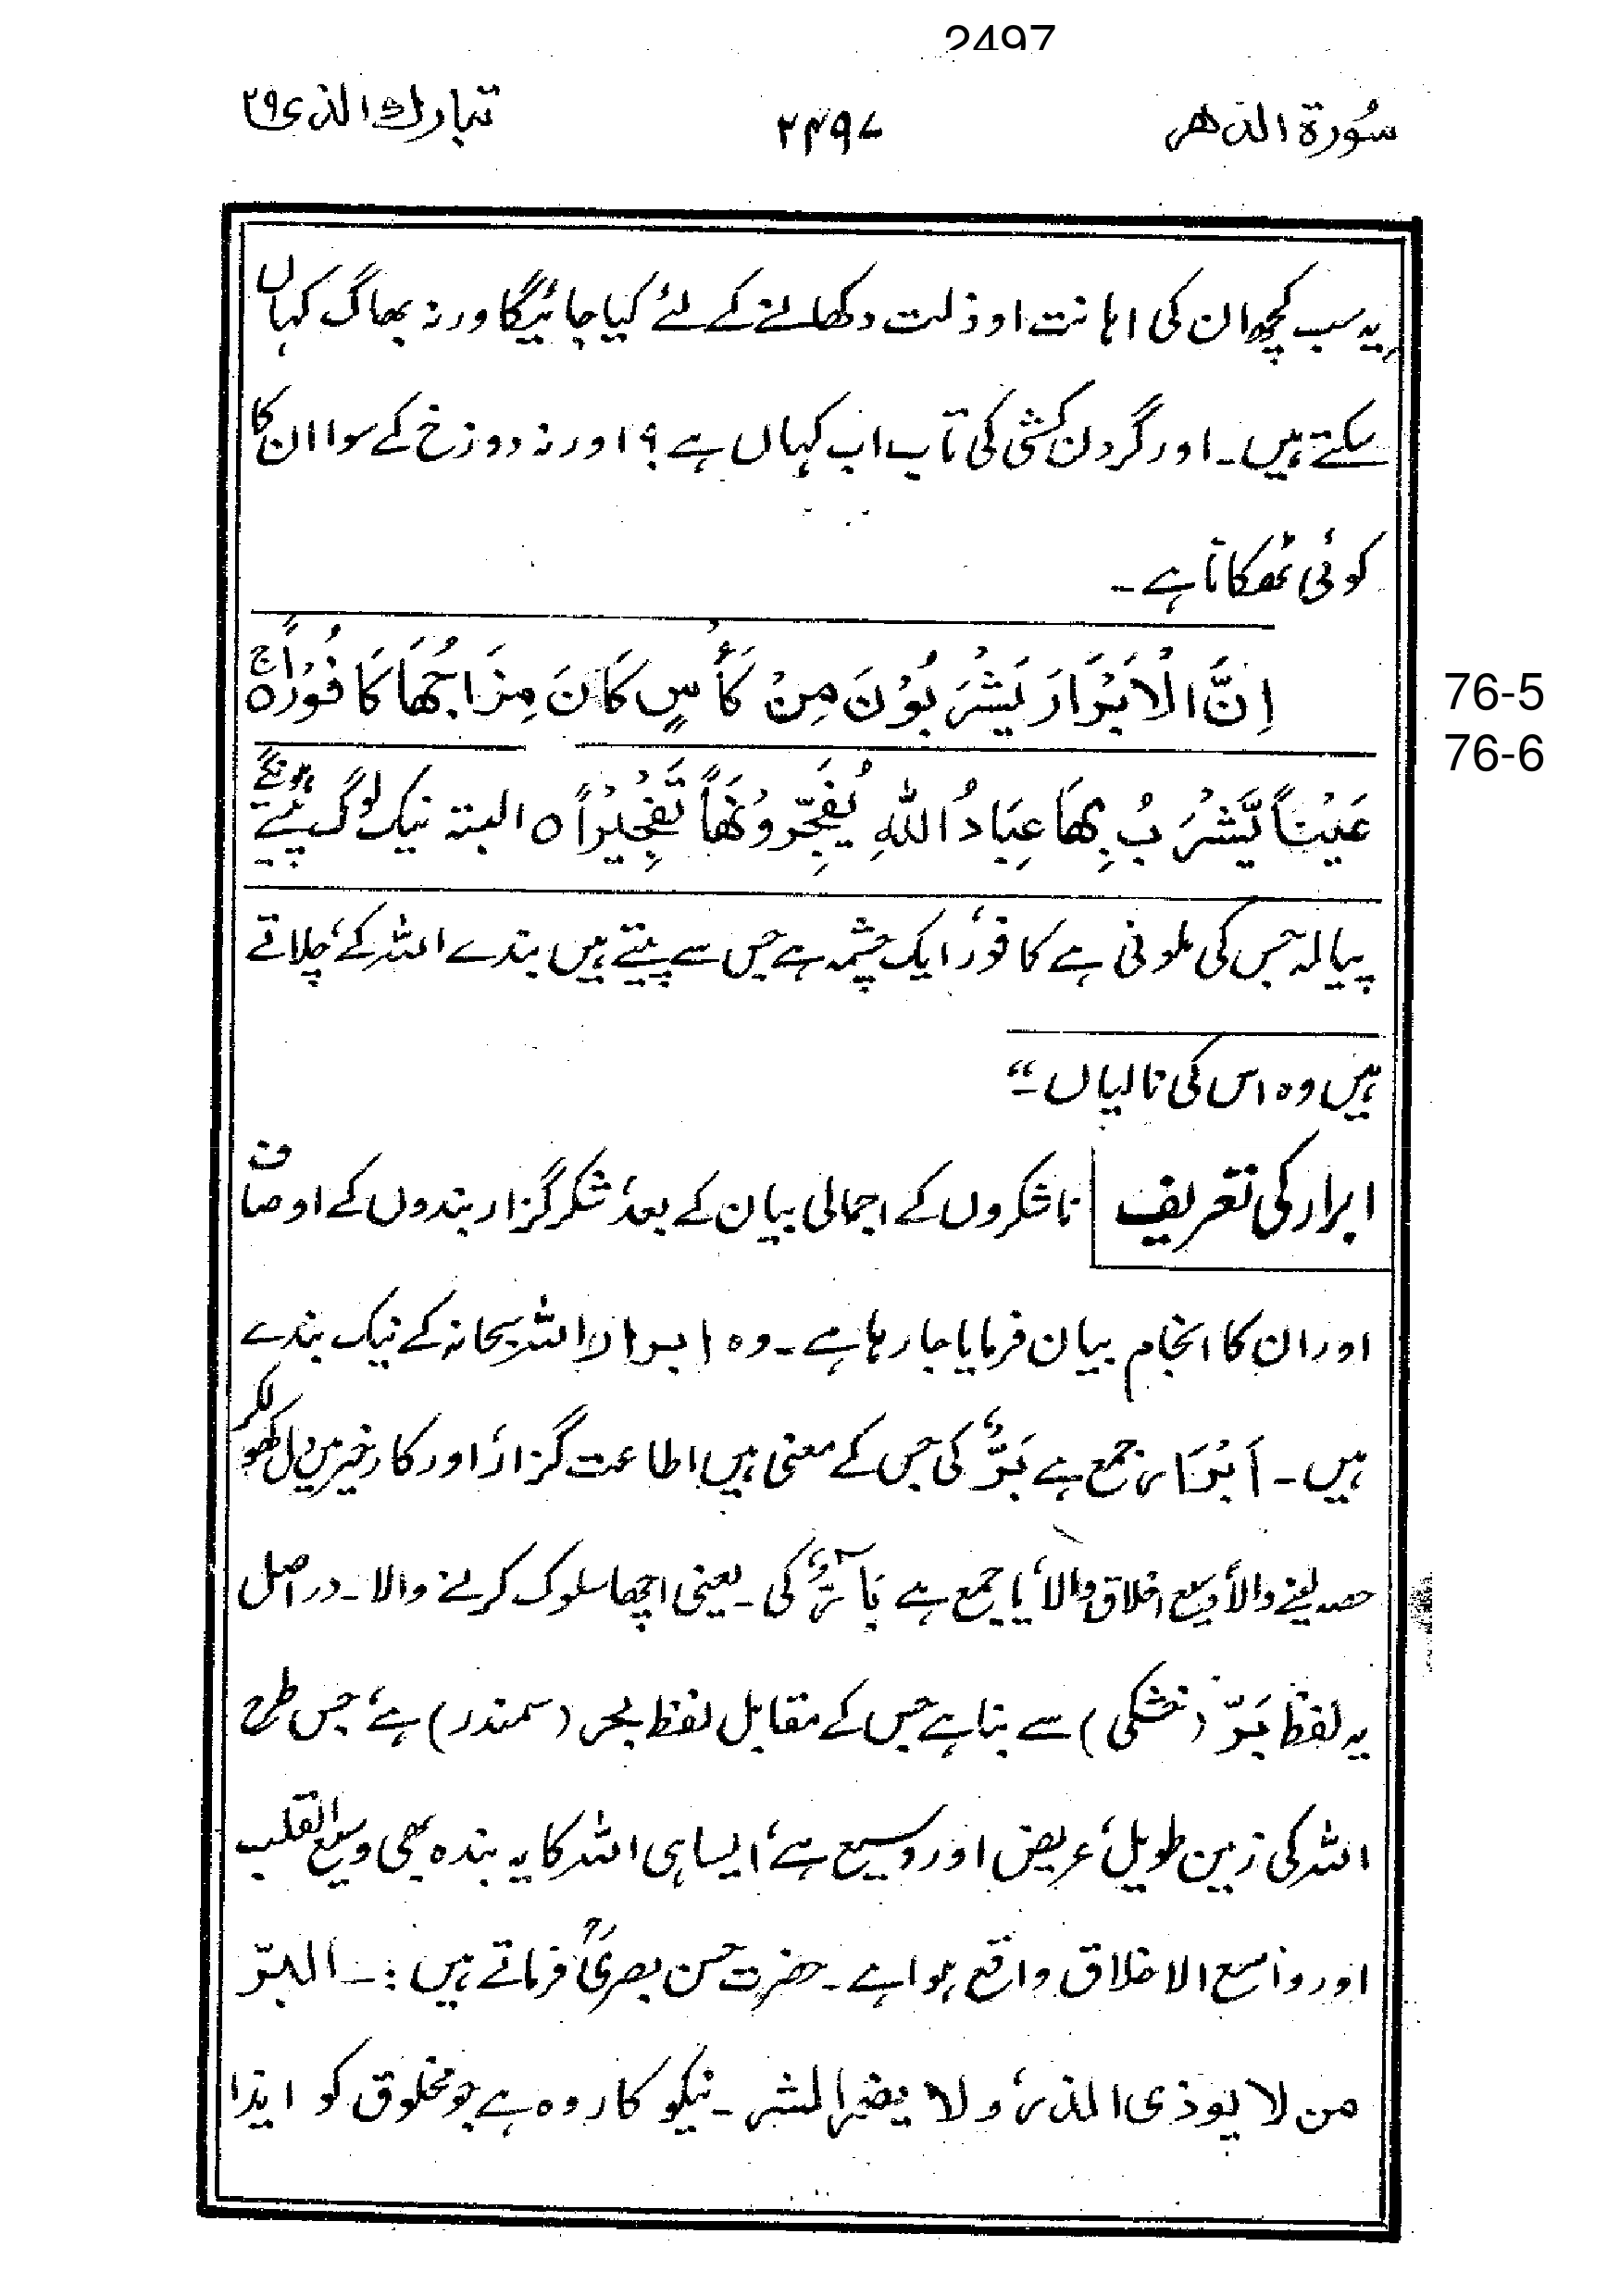 2497
سُورۃ الدھر ۲۴۹۷ تبارک الذی ۲۹
یہ سب کچھ ان کی اہانت او ذلت دکھانے کے لئے کیا جائیگا ورنہ بھاگ کہاں
سکتے ہیں۔ اور گردن کشی کی تاب اب کہاں ہے؟ اور نہ دوزخ کے سوا ان کا
کوئی ٹھکانا ہے۔
اِنَّ الْاَبْرَارَ یَشْرَبُوْنَ مِنْ کَاْسٍ کَانَ مِزَاجُھَا کَافُوْرًا ۵ ج
76-5
76-6
عَیْنًا یَّشْرَبُ بِھَا عِبَادُ اللہِ یُفَجِّرُوْنَھَا تَفْجِیْرًا ۵ البتہ نیک لوگ پئیں گے
پیالہ جس کی ملونی ہے کافور، ایک چشمہ ہے جس سے پیتے ہیں بندے اللہ کے، چلاتے
ہیں وہ اس کی نالیاں۔“
ابرار کی تعریف ناشکروں کے اجمالی بیان کے بعد، شکر گزار بندوں کے اوصاف
اور ان کا انجام بیان فرمایا جا رہا ہے۔ وہ ابرار اللہ سبحانہ کے نیک بندے
ہیں۔ اَبْرَار جمع ہے بَرٌّ، کی جس کے معنی ہیں اطاعت گزار، اور کار خیر میں دل کھول کر
حصہ لینے والا، وسیع اخلاق والا، یا جمع ہے بَآرٌّ، کی۔ یعنی اچھا سلوک کرنے والا۔ در اصل
یہ لفظ بَرّ (خشکی) سے بنا ہے جس کے مقابل لفظ بحر (سمندر) ہے، جس طرح
اللہ کی زمین طویل، عریض اور وسیع ہے، ایسا ہی اللہ کا یہ بندہ بھی وسیع القلب
اور واسع الاخلاق واقع ہوا ہے۔ حضرت حسن بصریؒ فرماتے ہیں :۔ البرّ
من لا یوذی الذر، و لا یضر الشر۔ نیکو کار وہ ہے جو مخلوق کو ایذا